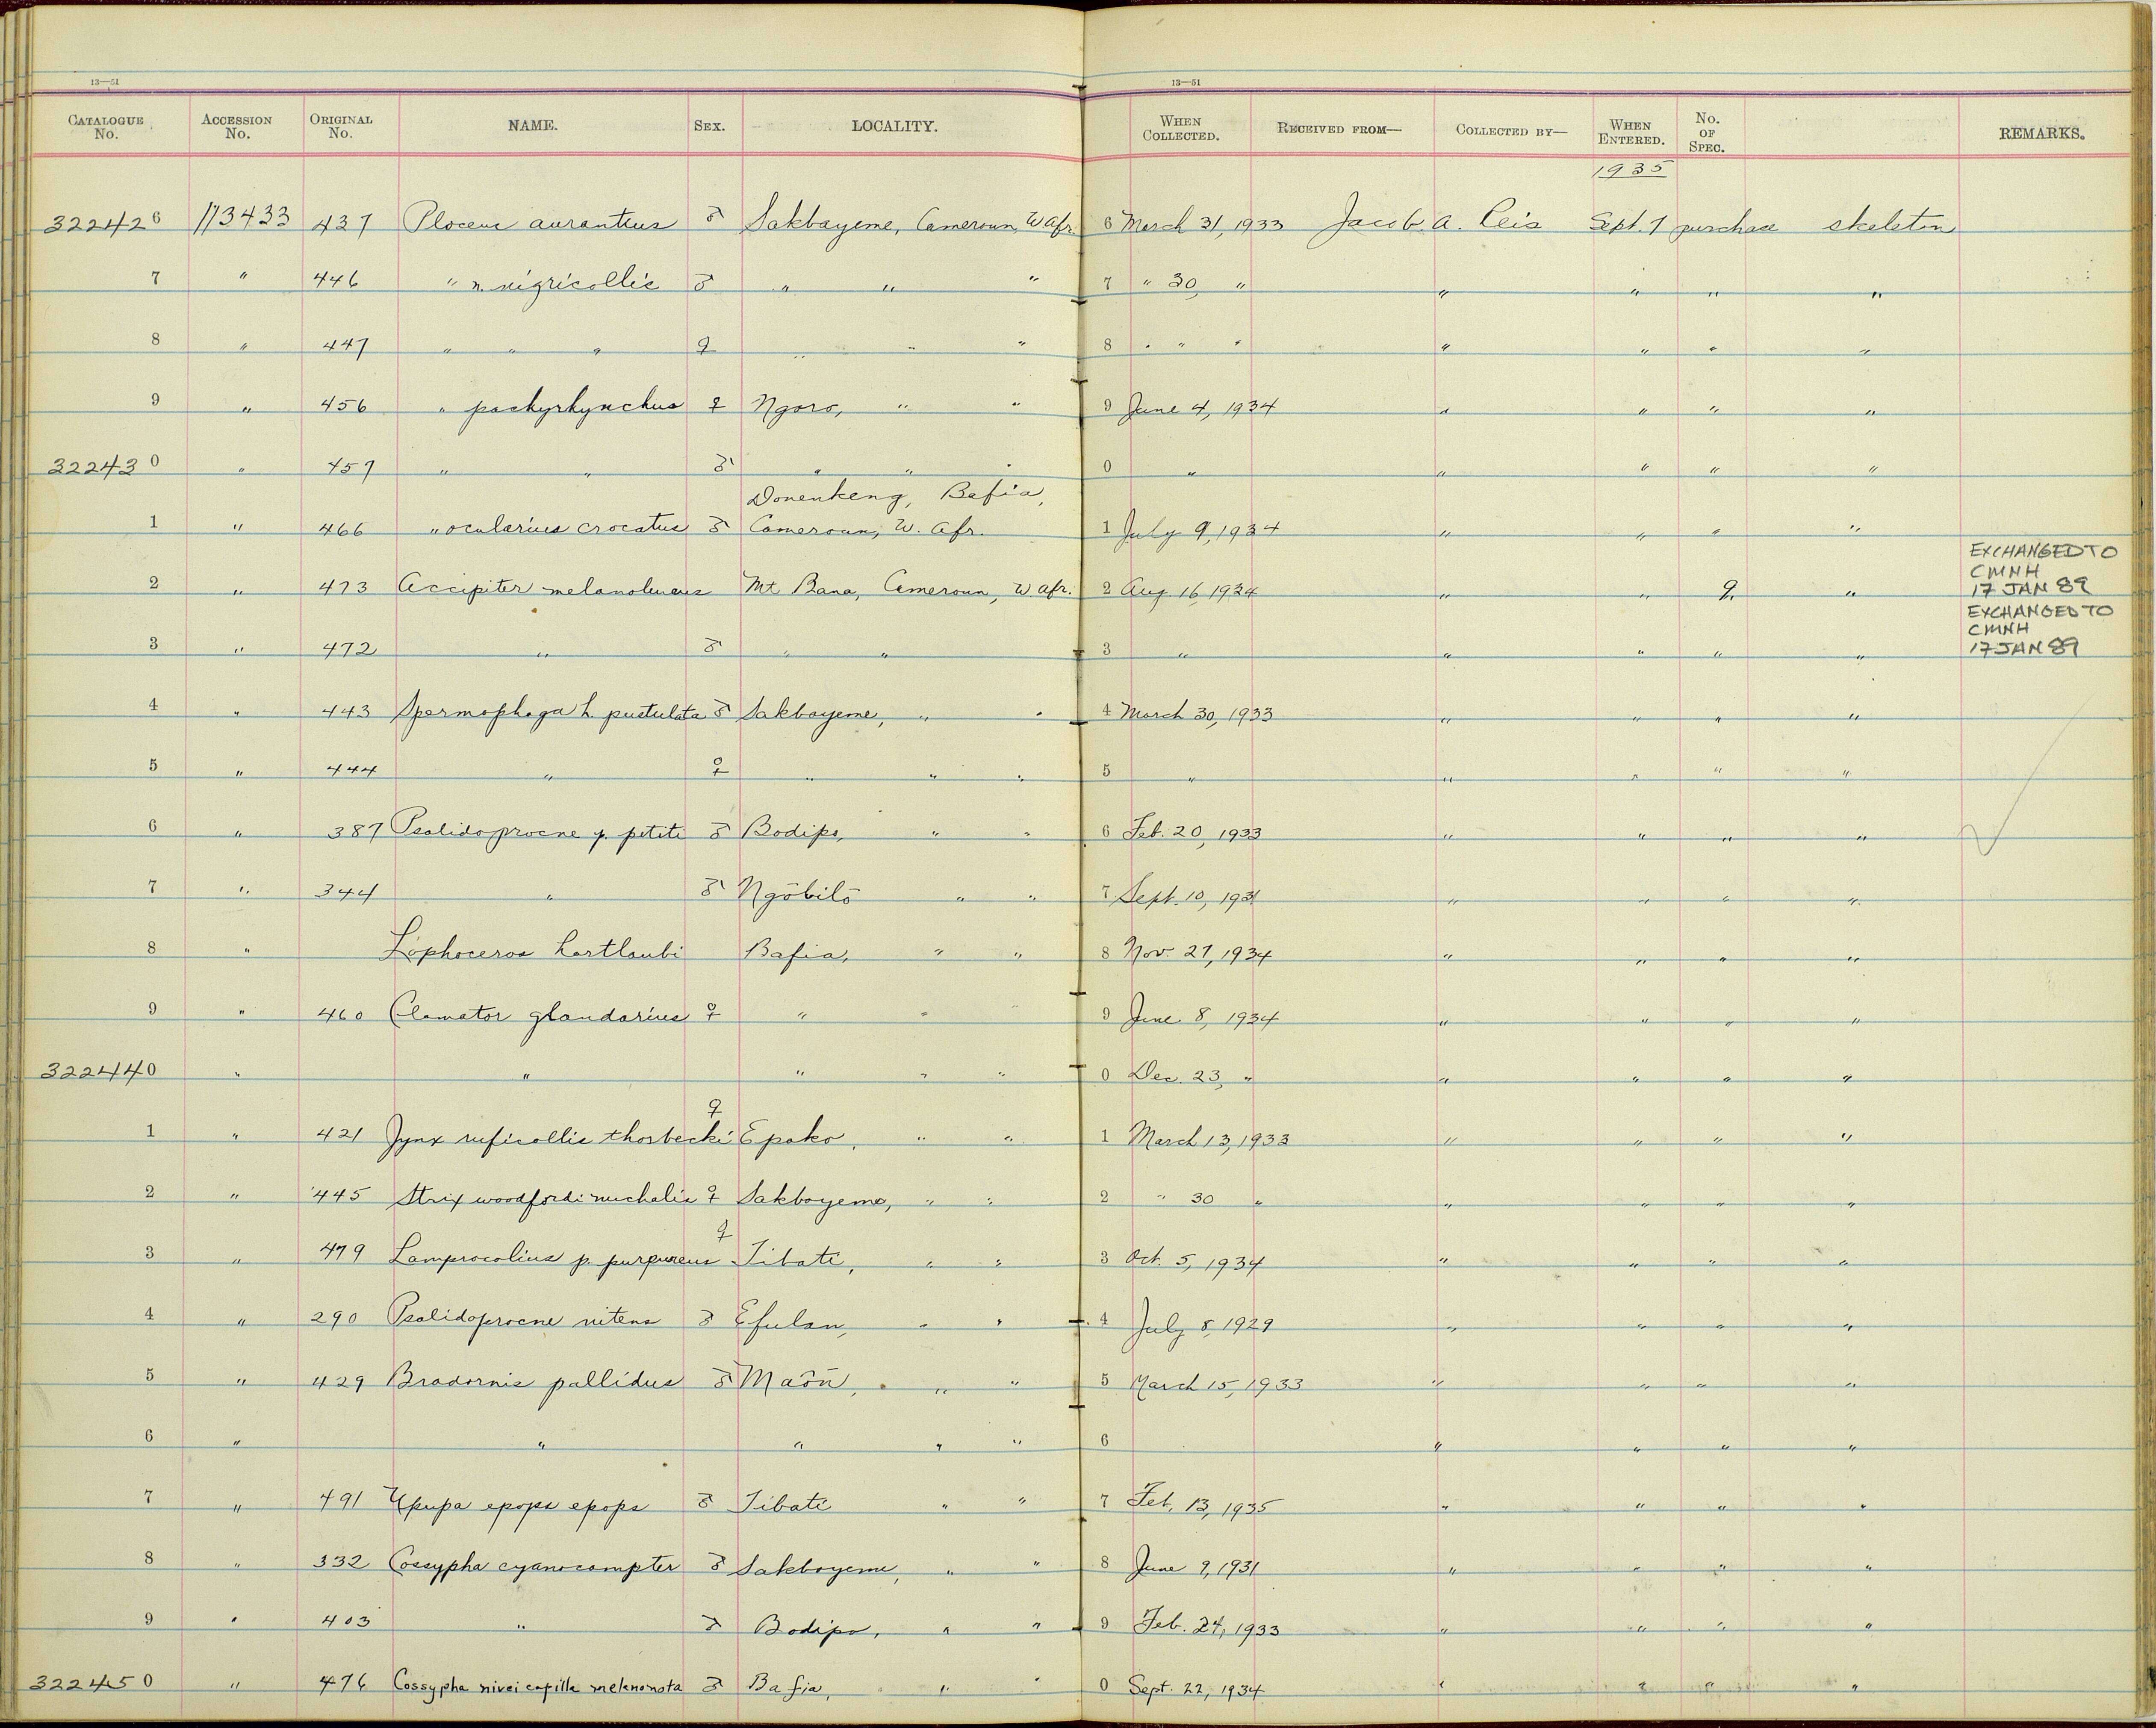 13—51 13—51
CATALOGUE No. ACCESSION No. ORIGINAL No. NAME. SEX. LOCALITY. WHEN COLLECTED. RECEIVED FROM— COLLECTED BY— WHEN ENTERED. No. OF SPEC. REMARKS.
1935
322426 113433 437 Ploceus aurantius ♂ Sakbayeme, Cameroun, W Afr. 6 March 31, 1933 Jacob A. Reis Sept. 7 purchase skeleton
7 " 446 " n. nigricollis ♂ " " " 7 " 30, " " " " "
8 " 447 " " " ♀ " " " 8 " " " " " " "
9 " 456 " pachyrhynchus ♀ Ngoro, " " 9 June 4, 1934 " " " "
322430 " 457 " " ♂ " " " 0 " " " " "
Donenkeng, Bafia,
1 " 466 " ocularius crocatus ♂ Cameroun, W. Afr. 1 July 9, 1934 " " " "
EXCHANGED TO
CMNH
2 " 473 Accipiter melanoleucus Mt Bana, Cameroun, W Afr. 2 Aug 16 1934 " " " " 17 JAN 89
EXCHANGED TO
CMNH
3 " 472 " ♂ " " 3 " " " " " 17 JAN 89
4 " 443 Spermophaga h. pustulata ♂ Sakbayeme, " " 4 March 30, 1933 " " " "
5 " 444 " ♀ " " " 5 " " " " "
6 " 387 Psalidoprocne p. petiti ♂ Bodipo, " " 6 Feb. 20, 1933 " " " "
7 " 344 " ♂ Ngōbilō " " 7 Sept. 10, 1931 " " " "
8 " Lophoceros hartlaubi Bafia, " " 8 Nov. 27, 1934 " " " "
9 " 460 Clamator glandarius ♀ " " " 9 June 8, 1934 " " " "
322440 " " " " " 0 Dec. 23, " " " " "
♀
1 " 421 Jynx ruficollis thorbecki Epako, " " 1 March 13, 1933 " " " "
2 " 445 Strix woodfordi nuchalis ♀ Sakbayeme, " " 2 " 30 " " " " "
♀
3 " 479 Lamprocolius p. purpureus Tibati, " " 3 Oct. 5, 1934 " " " "
4 " 290 Psalidoprocne nitens ♂ Efulan, " " 4 July 8, 1929 " " " "
5 " 429 Bradornis pallidus ♂ Maōn, " " 5 March 15, 1933 " " " "
6 " " " " " 6 " " " "
7 " 491 Upupa epops epops ♂ Tibati " " 7 Feb. 13, 1935 " " " "
8 " 332 Cossypha cyanocampter ♂ Sakbayeme, " " 8 June 9, 1931 " " " "
9 " 403 " ♂ Bodipo, " " 9 Feb. 24, 1933 " " " "
322450 " 476 Cossypha niveicapilla melanonota ♂ Bafia, " " 0 Sept. 22, 1934 " " " "